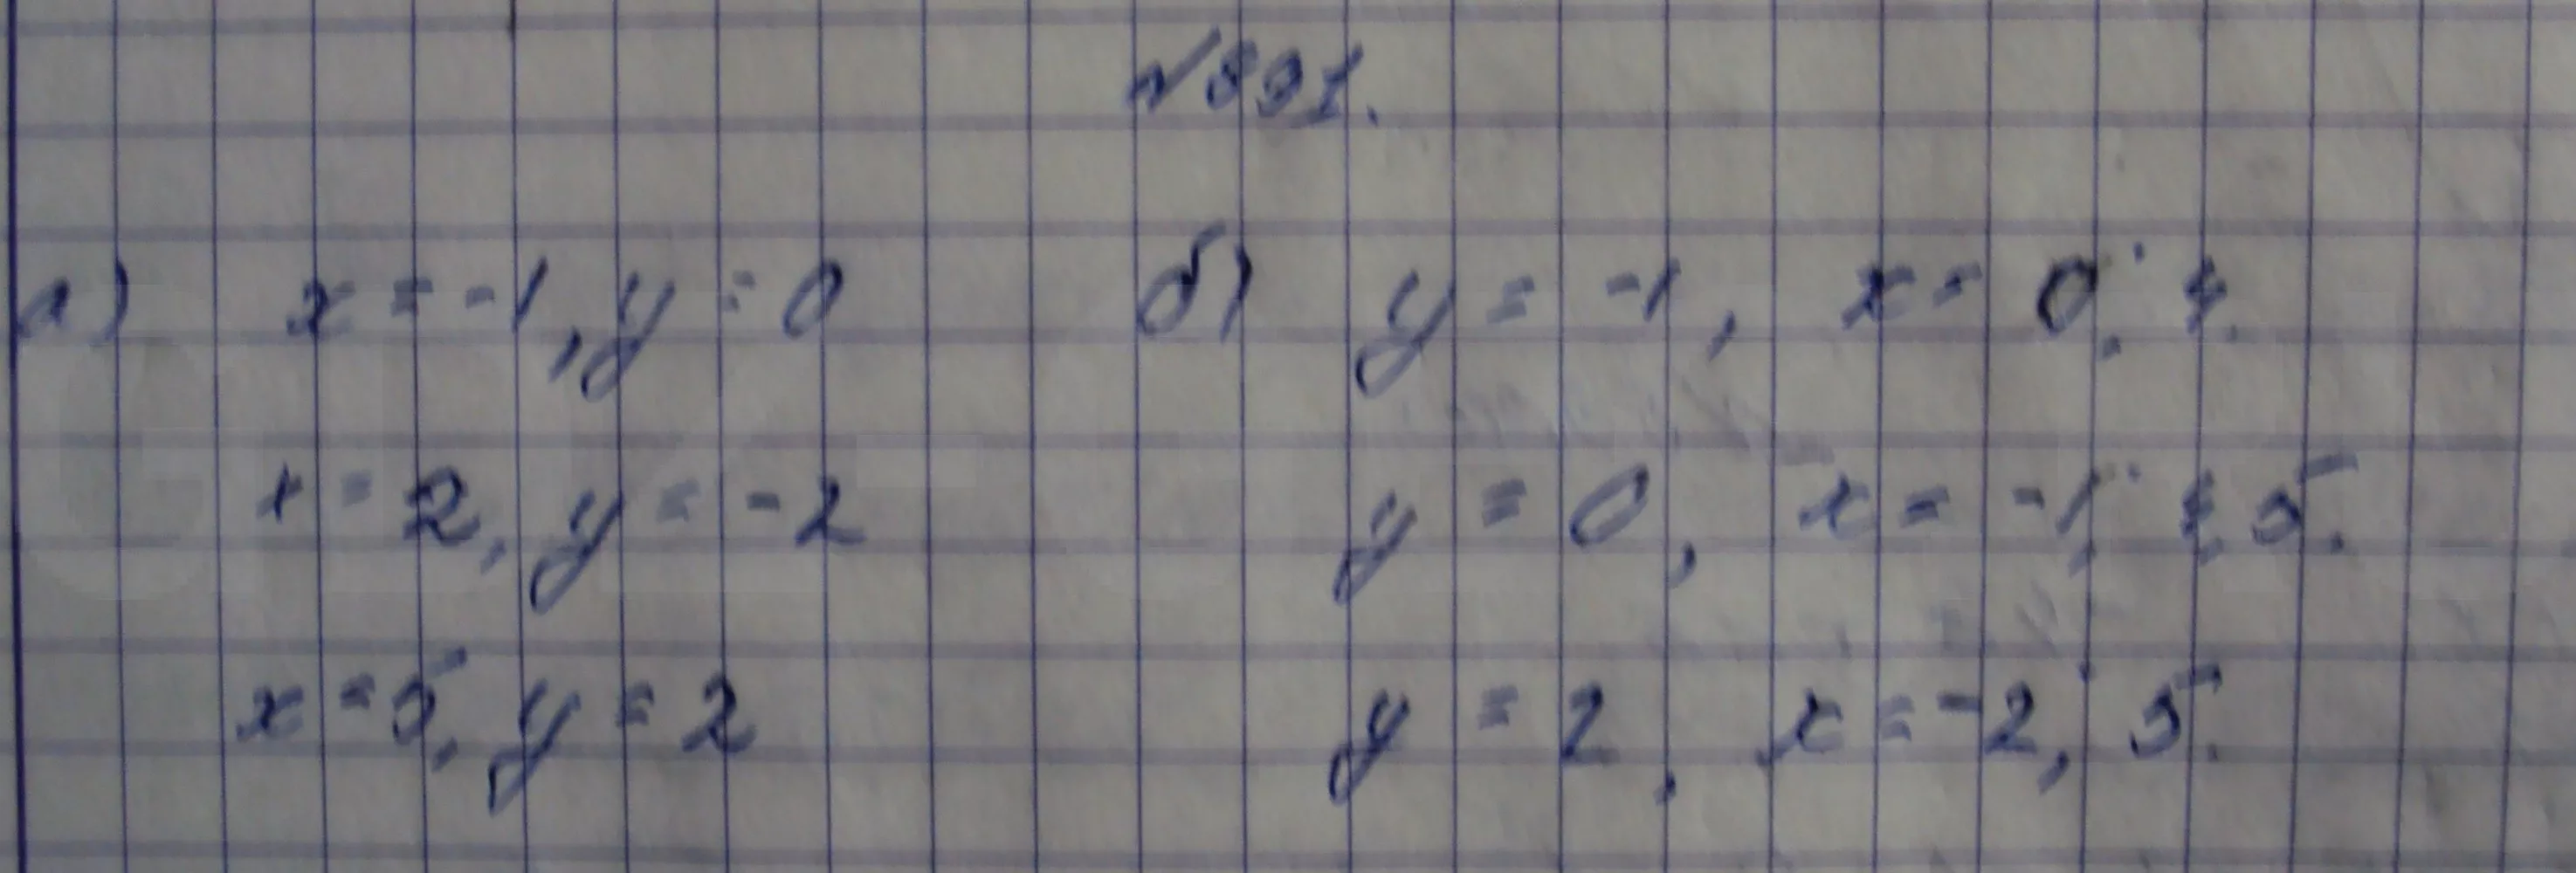 №891.
а) x = -1, y = 0 б) y = -1, x = 0; 4.
x = 2, y = -2 y = 0, x = -1; 4,5.
x = 5, y = 2 y = 2, x = -2; 5.